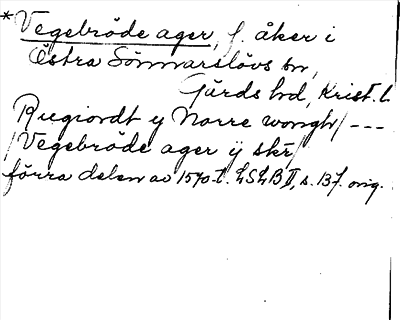 *Vegebröde ager, f. åker i
Östra Sönnarslövs sn,
Gärds hd, Krist. l.
Rugiordt y Norre wongh/ ---
/Vegebröde ager ÿ skr/
förra delen av 1570-t. LSLB II, s. 137. orig.